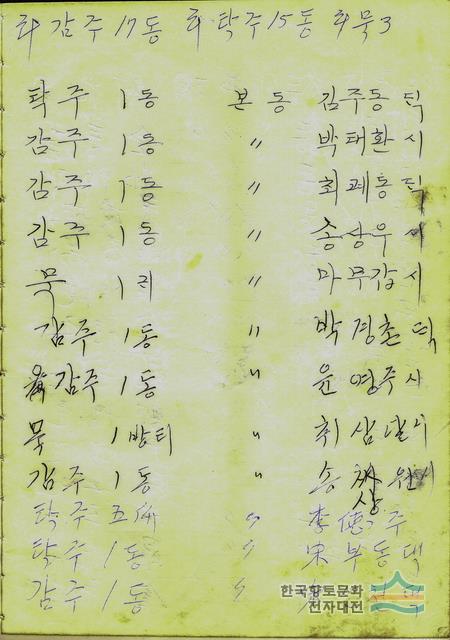 화 감주 17동 화 탁주 15동 화 묵 3
탁주 1동 본동 김주동 댁
감주 1동 〃 박태환 시
감주 1동 〃 최폐동 댁
감주 1동 〃 송상우
묵 1리 〃 마무갑 시
감주 1동 〃 박경촌 댁
감주 1동 〃 윤영주 시
묵 1방티 〃 취삼날시
감주 1동 〃 송상원시
탁주 五 〃 李德주
탁주 1동 〃 宋부동댁
감주 1동 〃
한국향토문화
전자대전